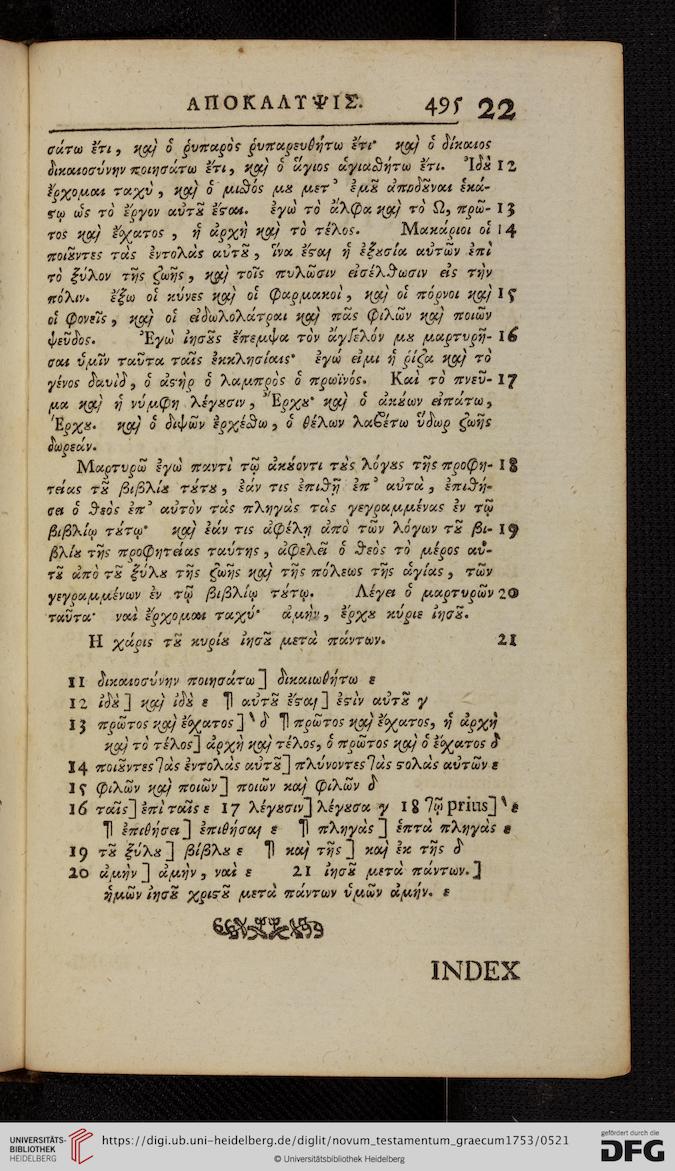 ΑΠΟΚΑΛΥΨΙΣ. 495 22
σάτω ἔτι, καὶ ὁ ῥυπαρὸς ῥυπαρευθήτω ἔτι· καὶ ὁ δίκαιος
δικαιοσύνην ποιησάτω ἔτι, καὶ ὁ ἅγιος ἁγιασθήτω ἔτι. Ἰδοὺ 12
ἔρχομαι ταχύ, καὶ ὁ μισθός μου μετ᾽ ἐμοῦ ἀποδοῦναι ἑκά-
στῳ ὡς τὸ ἔργον αὐτοῦ ἔσται. ἐγὼ τὸ ἄλφα καὶ τὸ Ω, πρῶ- 13
τος καὶ ἔσχατος, ἡ ἀρχὴ καὶ τὸ τέλος. Μακάριοι οἱ 14
ποιοῦντες τὰς ἐντολὰς αὐτοῦ, ἵνα ἔσται ἡ ἐξουσία αὐτῶν ἐπὶ
τὸ ξύλον τῆς ζωῆς, καὶ τοῖς πυλῶσιν εἰσέλθωσιν εἰς τὴν
πόλιν. ἔξω οἱ κύνες καὶ οἱ φαρμακοὶ, καὶ οἱ πόρνοι καὶ 15
οἱ φονεῖς, καὶ οἱ εἰδωλολάτραι καὶ πᾶς φιλῶν καὶ ποιῶν
ψεῦδος. Ἐγὼ ἰησοῦς ἔπεμψα τὸν ἄγγελόν μου μαρτυρῆ- 16
σαι ὑμῖν ταῦτα ταῖς ἐκκλησίαις· ἐγώ εἰμι ἡ ῥίζα καὶ τὸ
γένος δαυὶδ, ὁ ἀστὴρ ὁ λαμπρὸς ὁ πρωϊνός. Καὶ τὸ πνεῦ- 17
μα καὶ ἡ νύμφη λέγουσιν, Ἔρχου· καὶ ὁ ἀκούων εἰπάτω,
Ἔρχου. καὶ ὁ διψῶν ἐρχέσθω, ὁ θέλων λαβέτω ὕδωρ ζωῆς
δωρεάν.
Μαρτυρῶ ἐγὼ παντὶ τῷ ἀκούοντι τοὺς λόγους τῆς προφη- 18
τείας τοῦ βιβλίου τούτου, ἐάν τις ἐπιθῇ ἐπ᾽ αὐτὰ, ἐπιθή-
σει ὁ θεὸς ἐπ᾽ αὐτὸν τὰς πληγὰς τὰς γεγραμμένας ἐν τῷ
βιβλίῳ τούτῳ· καὶ ἐάν τις ἀφέλῃ ἀπὸ τῶν λόγων τοῦ βι- 19
βλίου τῆς προφητείας ταύτης, ἀφελεῖ ὁ θεὸς τὸ μέρος αὐ-
τοῦ ἀπὸ τοῦ ξύλου τῆς ζωῆς καὶ τῆς πόλεως τῆς ἁγίας, τῶν
γεγραμμένων ἐν τῷ βιβλίῳ τούτῳ. Λέγει ὁ μαρτυρῶν 20
ταῦτα· ναὶ ἔρχομαι ταχύ· ἀμὴν, ἔρχου κύριε ἰησοῦ.
Η χάρις τοῦ κυρίου ἰησοῦ μετὰ πάντων. 21
11 δικαιοσύνην ποιησάτω ] δικαιωθήτω ε
12 ἰδοὺ ] καὶ ἰδοὺ ε ¶ αὐτοῦ ἔσται ] ἐστὶν αὐτοῦ γ
13 πρῶτος καὶ ἔσχατος ] ὁ δ ¶ πρῶτος καὶ ἔσχατος, ἡ ἀρχὴ
καὶ τὸ τέλος] ἀρχὴ καὶ τέλος, ὁ πρῶτος καὶ ὁ ἔσχατος δ
14 ποιοῦντες τὰς ἐντολὰς αὐτοῦ] πλύνοντες τὰς στολὰς αὐτῶν ε
15 φιλῶν καὶ ποιῶν ] ποιῶν καὶ φιλῶν δ
16 ταῖς] ἐπὶ ταῖς ε 17 λέγουσιν] λέγουσα γ 18 τῷ prius] ‵ ε
¶ ἐπιθήσει ] ἐπιθήσαι ε ¶ πληγὰς ] ἑπτὰ πληγὰς ε
19 τοῦ ξύλου ] βίβλου ε ¶ καὶ τῆς ] καὶ ἐκ τῆς δ
20 ἀμὴν ] ἀμὴν, ναὶ ε 21 ἰησοῦ μετὰ πάντων. ]
ἡμῶν ἰησοῦ χριστοῦ μετὰ πάντων ὑμῶν ἀμήν. ε
INDEX
UNIVERSITÄTS-
BIBLIOTHEK
HEIDELBERG
https://digi.ub.uni-heidelberg.de/diglit/novum_testamentum_graecum1753/0521
© Universitätsbibliothek Heidelberg
gefördert durch die
DFG